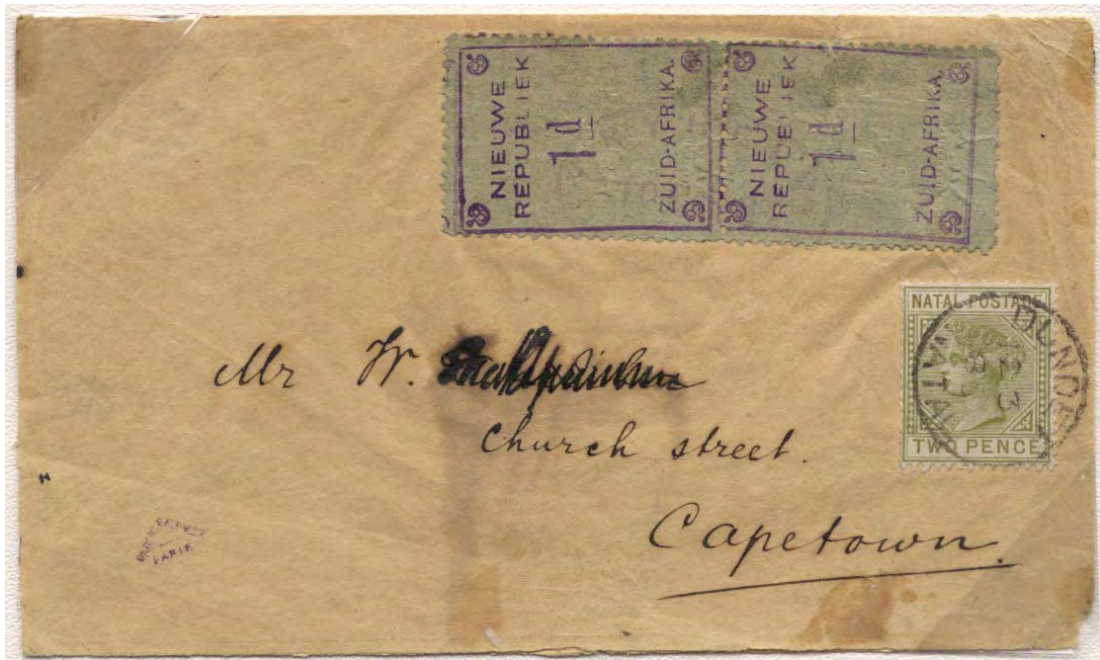 NIEUWE
REPUBLIEK
1d
ZUID-AFRIKA.
NIEUWE
REPUBLIEK
1d
ZUID-AFRIKA.
NATAL POSTAGE
TWO PENCE
DUNDEE
NATAL
Mr W.
Church street.
Capetown.
PARIS